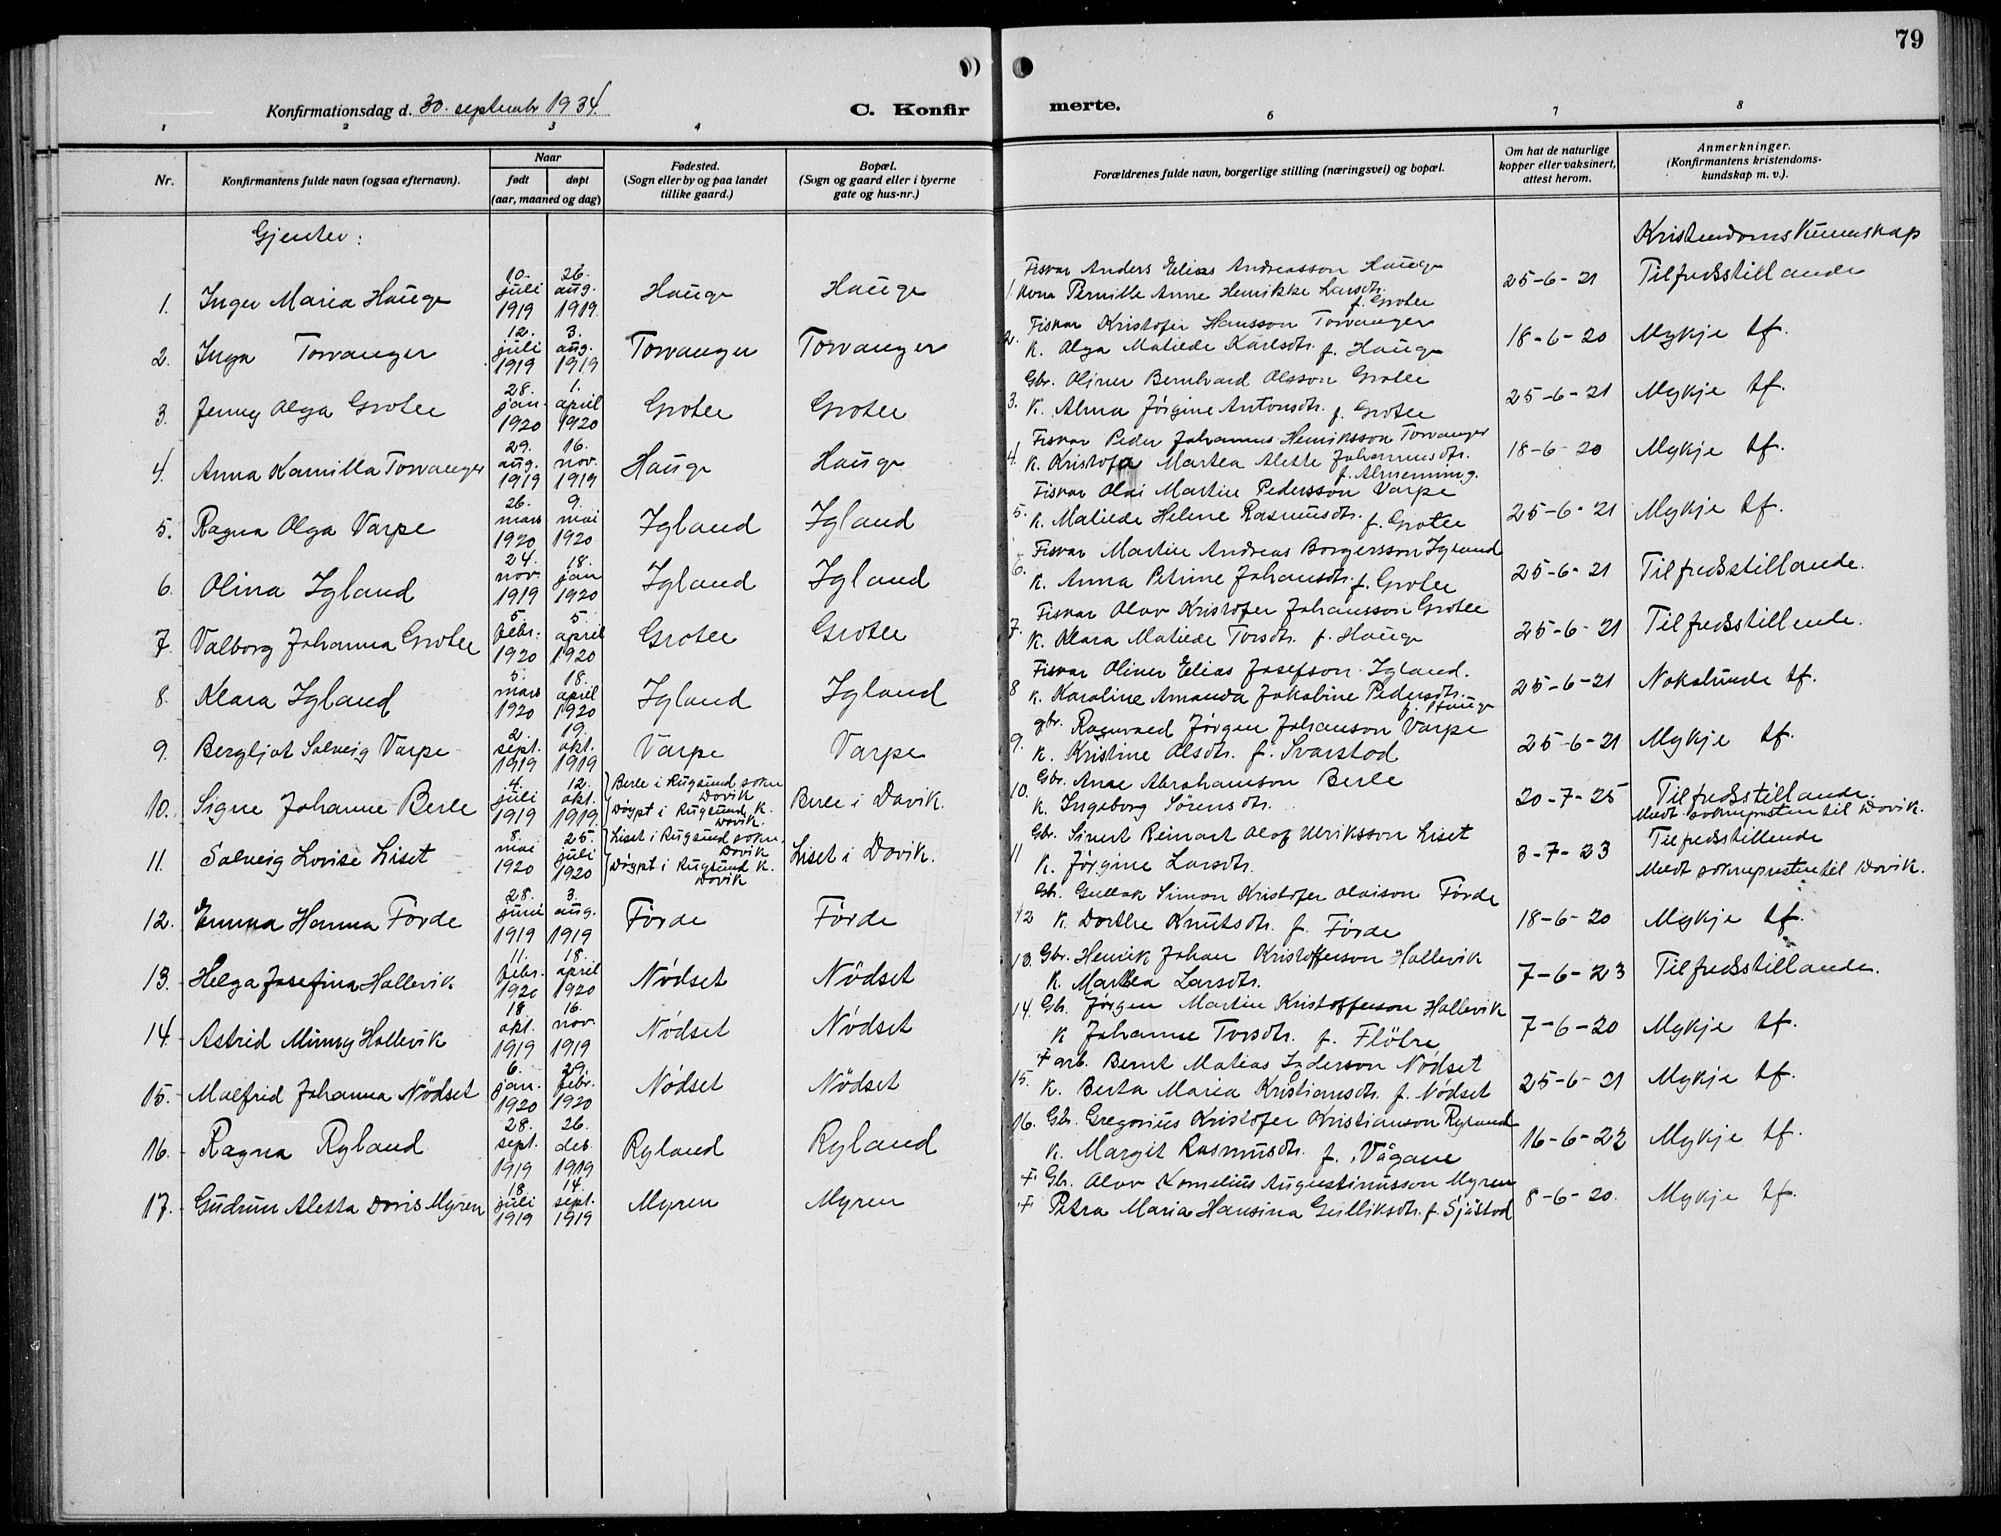 79
Konfirmationsdag d. 30. septembr 1934.
C. Konfir
merte.
1 2 3 4
6 7 8
Nr.
Konfirmantens fulde navn (ogsaa efternavn).
Naar
født
døpt
(aar, maaned og dag)
Fødested.
(Sogn eller by og paa landet
tillike gaard.)
Bopæl.
(Sogn og gaard eller i byerne
gate og hus-nr.)
Forældrenes fulde navn, borgerlige stilling (næringsvei) og bopæl.
Om hat de naturlige
kopper eller vaksinert,
attest herom.
Anmerkninger.
(Konfirmantens kristendoms-
kundskap m. v.).
Gjenter:
Kristendomskunnskap
1. Inger Maria Hauge 10. juli 1919 26. aug. 1919 Hauge Hauge
1. Fiskar Anders Elias Andreasson Hauge
Kona Pernille Anne Henrikke Larsdtr. f. Grotle
25-6-21 Tilfredsstillande
2. Inga Torvanger 12. juli 1919 3. aug. 1919 Torvanger Torvanger
2. Fiskar Kristofer Hansson Torvanger
K. Olga Matilde Karlsdtr. f. Hauge
18-6-20 Mykje tf.
3. Jenny Olga Grotle 28. jan. 1920 1. april 1920 Grotle Grotle
3. Gbr. Oliver Bernhard Olsson Grotle
K. Alma Jørgine Antonsdtr. f. Grotle
25-6-21 Mykje tf.
4. Anna Kamilla Torvanger 29. aug. 1919 16. nov. 1919 Hauge Hauge
4. Fiskar Peder Johannes Henriksson Torvanger
K. Kristofa Martea Alette Johannesdtr. f. Almenning.
18-6-20 Mykje tf.
5. Ragna Olga Varpe 26. mars 1920 9. mai 1920 Igland Igland
5. Fiskar Olai Martin Pedersson Varpe
K. Matilde Helene Rasmusdtr. f. Grotle
25-6-21 Mykje tf.
6. Olina Igland 24. nov. 1919 18. jan 1920 Igland Igland
6. Fiskar Martin Andreas Borgersson Igland
K. Anna Petrine Johansdtr. f. Grotle
25-6-21 Tilfredsstillande.
7. Valborg Johanna Grotle 5. febr. 1920 5. april 1920 Grotle Grotle
7. Fiskar Olav Kristofer Johansson Grotle
K. Klara Matilde Torsdtr. f. Hauge
25-6-21 Tilfredsstillende.
8. Klara Igland 5. mars 1920 18. april 1920 Igland Igland
8 Fiskar Oliver Elias Josefson Igland.
K. Karoline Amanda Jakobine Pedersdtr. f. Hauge
25-6-21 Nokolunde tf.
9. Bergljot Solveig Varpe 2. sept. 1919 19. okt. 1919 Varpe Varpe
9. gbr. Ragnvald Jørgen Johanson Varpe
K. Kristine Olsdtr. f. Svarstad
25-6-21 Mykje tf.
10. Signe Johanne Berle 4. juli 1919 12. okt. 1919. Berle i Rugsund sokn Davik Døypt i Rugsund K. Davik. Berle i Davik.
10. Gbr. Anae Abrahamson Berle
K. Ingeborg Sörensdtr.
20-7-25 Tilfredsstillande. Meldt soknepresten til Davik.
11. Solveig Lovise Liset 8. mai 1920 25. juli 1920 Liset i Rugsund sokn, Davik Døypt i Rugsund K. Davik Liset i Davik.
11 Gbr. Sivert Reinart Olaf Ulriksson Liset
K. Jörgine Larsdtr.
3-7-23 Tilfredsstillende Meldt soknepresten til Davik.
12. Emma Hanna Förde 28. juni 1919 3. aug. 1919 Förde Förde
12 Gbr. Gullak Simon Kristofer Olaison Förde
K. Dorthe Knutsdtr. f. Förde
18-6-20 Mykje tf.
13. Helga Josefina Hallevik 11. febr. 1920 18. april 1920 Nödset Nödset
13. Gbr. Henrik Johan Kristofferson Hallevik
K. Martea Larsdtr.
7-6-23 Tilfredsstillande.
14. Astrid Minny Hallevik 18 okt. 1919 16. nov. 1919 Nödset Nödset
14. Gbr. Jørgen Martin Kristofferson Hallevik
K Johanne Torsdtr. f. Flölre
7-6-20 Mykje tf.
15. Malfrid Johanna Nödset 6. jan. 1920 29. febr. 1920 Nödset Nödset
15. F arb. Bernt Matias Inderson Nödset
K. Berta Maria Kristiansdtr. f. Nödset
25-6-21 Mykje tf.
16. Ragna Ryland 28. sept. 1919 26. des. 1919 Ryland Ryland
16. Gbr. Gregorius Kristofer Kristianson Ryland
K. Margit Rasmusdtr. f. Vågane
16-6-22 Mykje tf.
17. Gudrun Aletta Doris Myren 18 juli 1919 14. sept. 1919 Myren Myren
+ Gbr. Olav Kornelius Augustinusson Myren
+ Petra Maria Hansina Gulliksdtr. f. Sjåstad
8-6-20. Mykje tf.